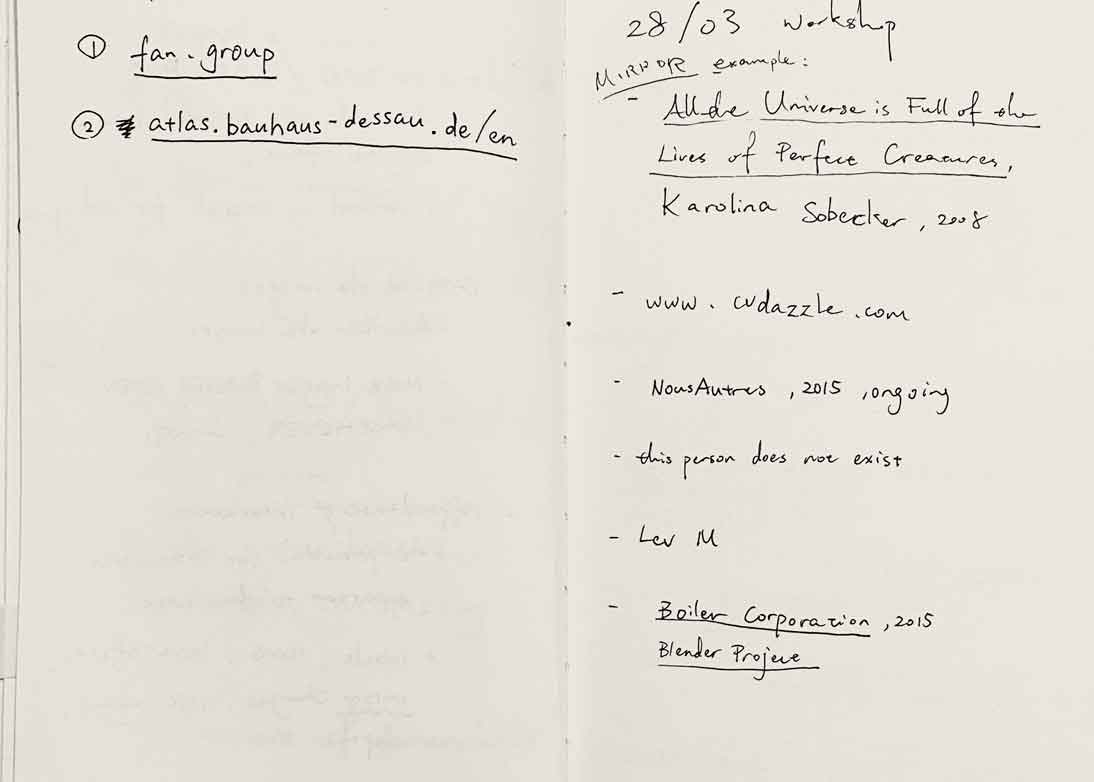 ① fan.group
② atlas.bauhaus-dessau.de/en
28/03 workshop
MIRROR example:
- All the Universe is Full of the
Lives of Perfect Creatures,
Karolina Sobecker, 2008
- www.cvdazzle.com
- NousAutres, 2015, ongoing
- this person does not exist
- Lev M
- Boiler Corporation, 2015
Blender Project